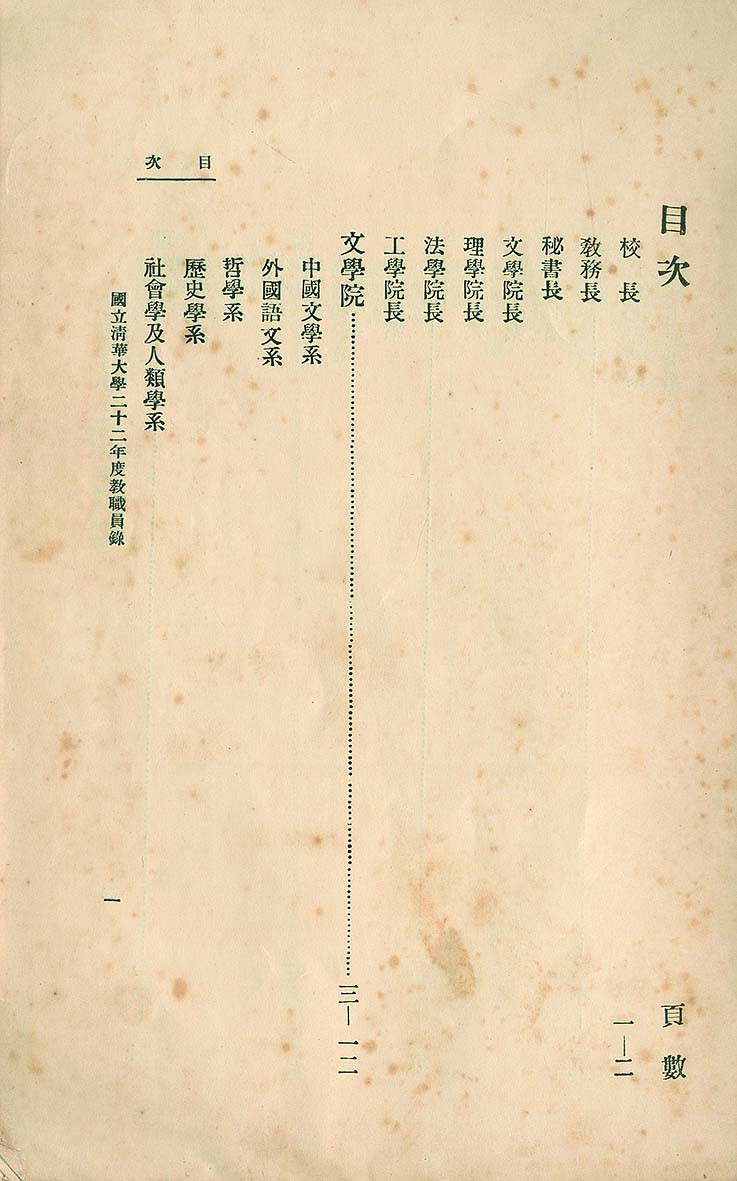 目次　頁數
校長　一—二
教務長
秘書長
文學院長
理學院長
法學院長
工學院長
文學院……三—一二
中國文學系
外國語文系
哲學系
歷史學系
社會學及人類學系
目次
國立清華大學二十二年度教職員錄　一